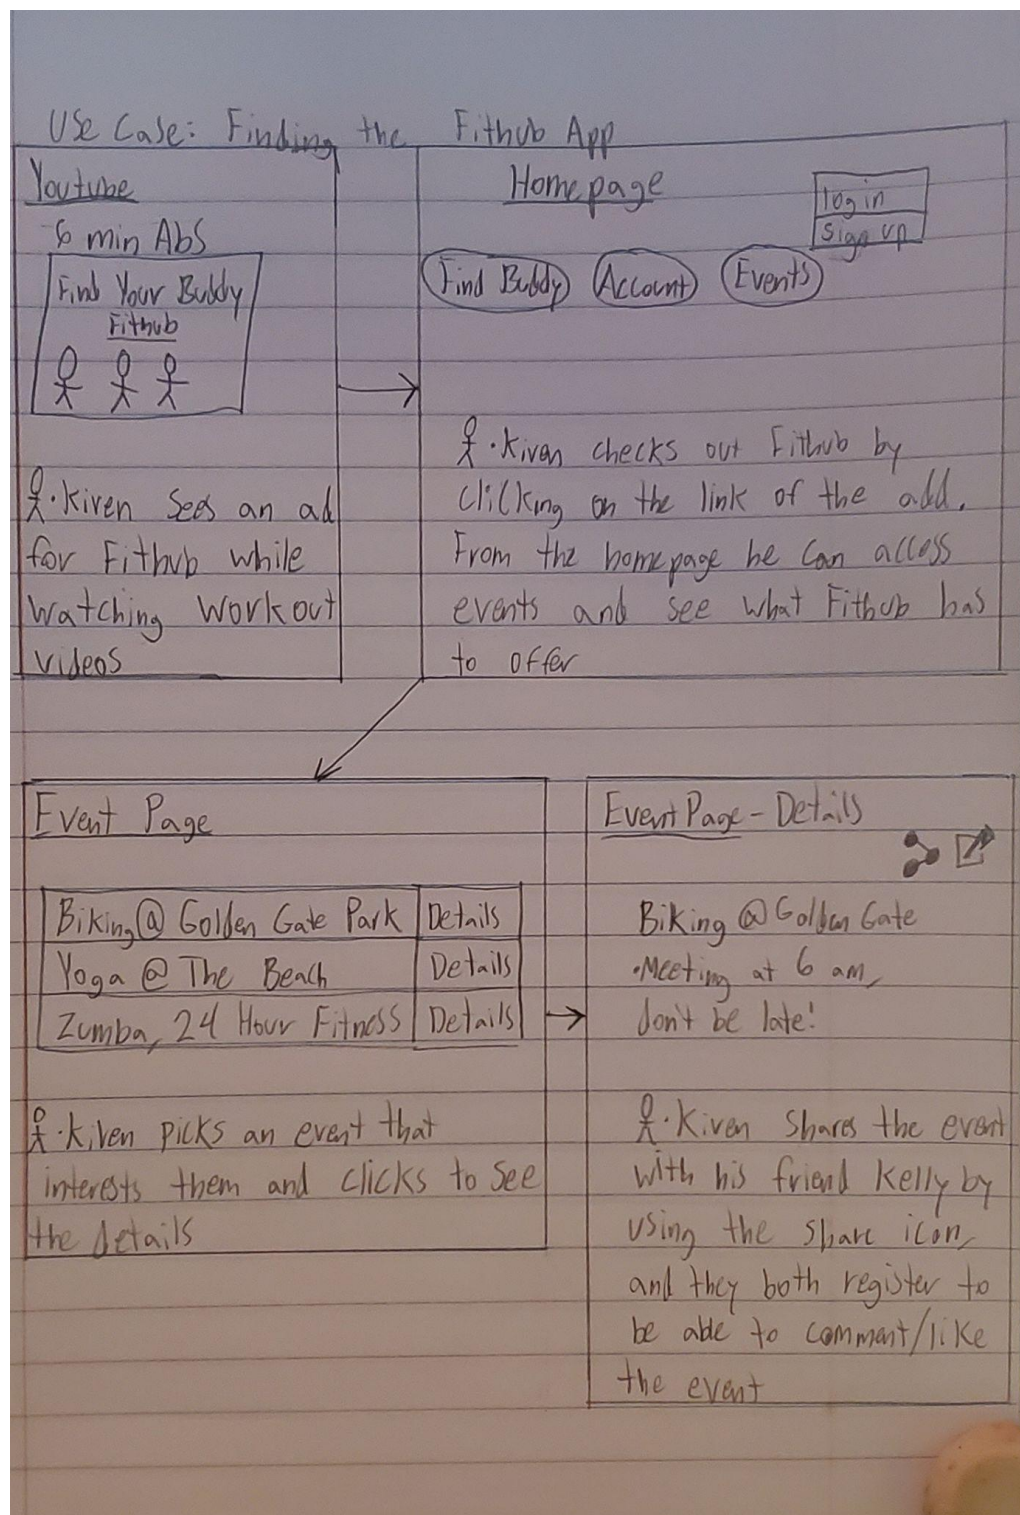 Use Case: Finding the Fithub App
Youtube
6 min Abs
Find Your Buddy
Fithub
·Kiven sees an ad
for Fithub while
watching workout
videos
Homepage
log in
sign up
Find Buddy Account Events
·Kiven checks out Fithub by
clicking on the link of the add.
From the homepage he can access
events and see what Fithub has
to offer
Event Page
Biking @ Golden Gate Park Details
Yoga @ The Beach Details
Zumba, 24 Hour Fitness Details
·Kiven picks an event that
interests them and clicks to see
the details
Event Page - Details
Biking @ Golden Gate
·Meeting at 6 am,
don't be late!
·Kiven shares the event
with his friend Kelly by
using the share icon,
and they both register to
be able to comment/like
the event